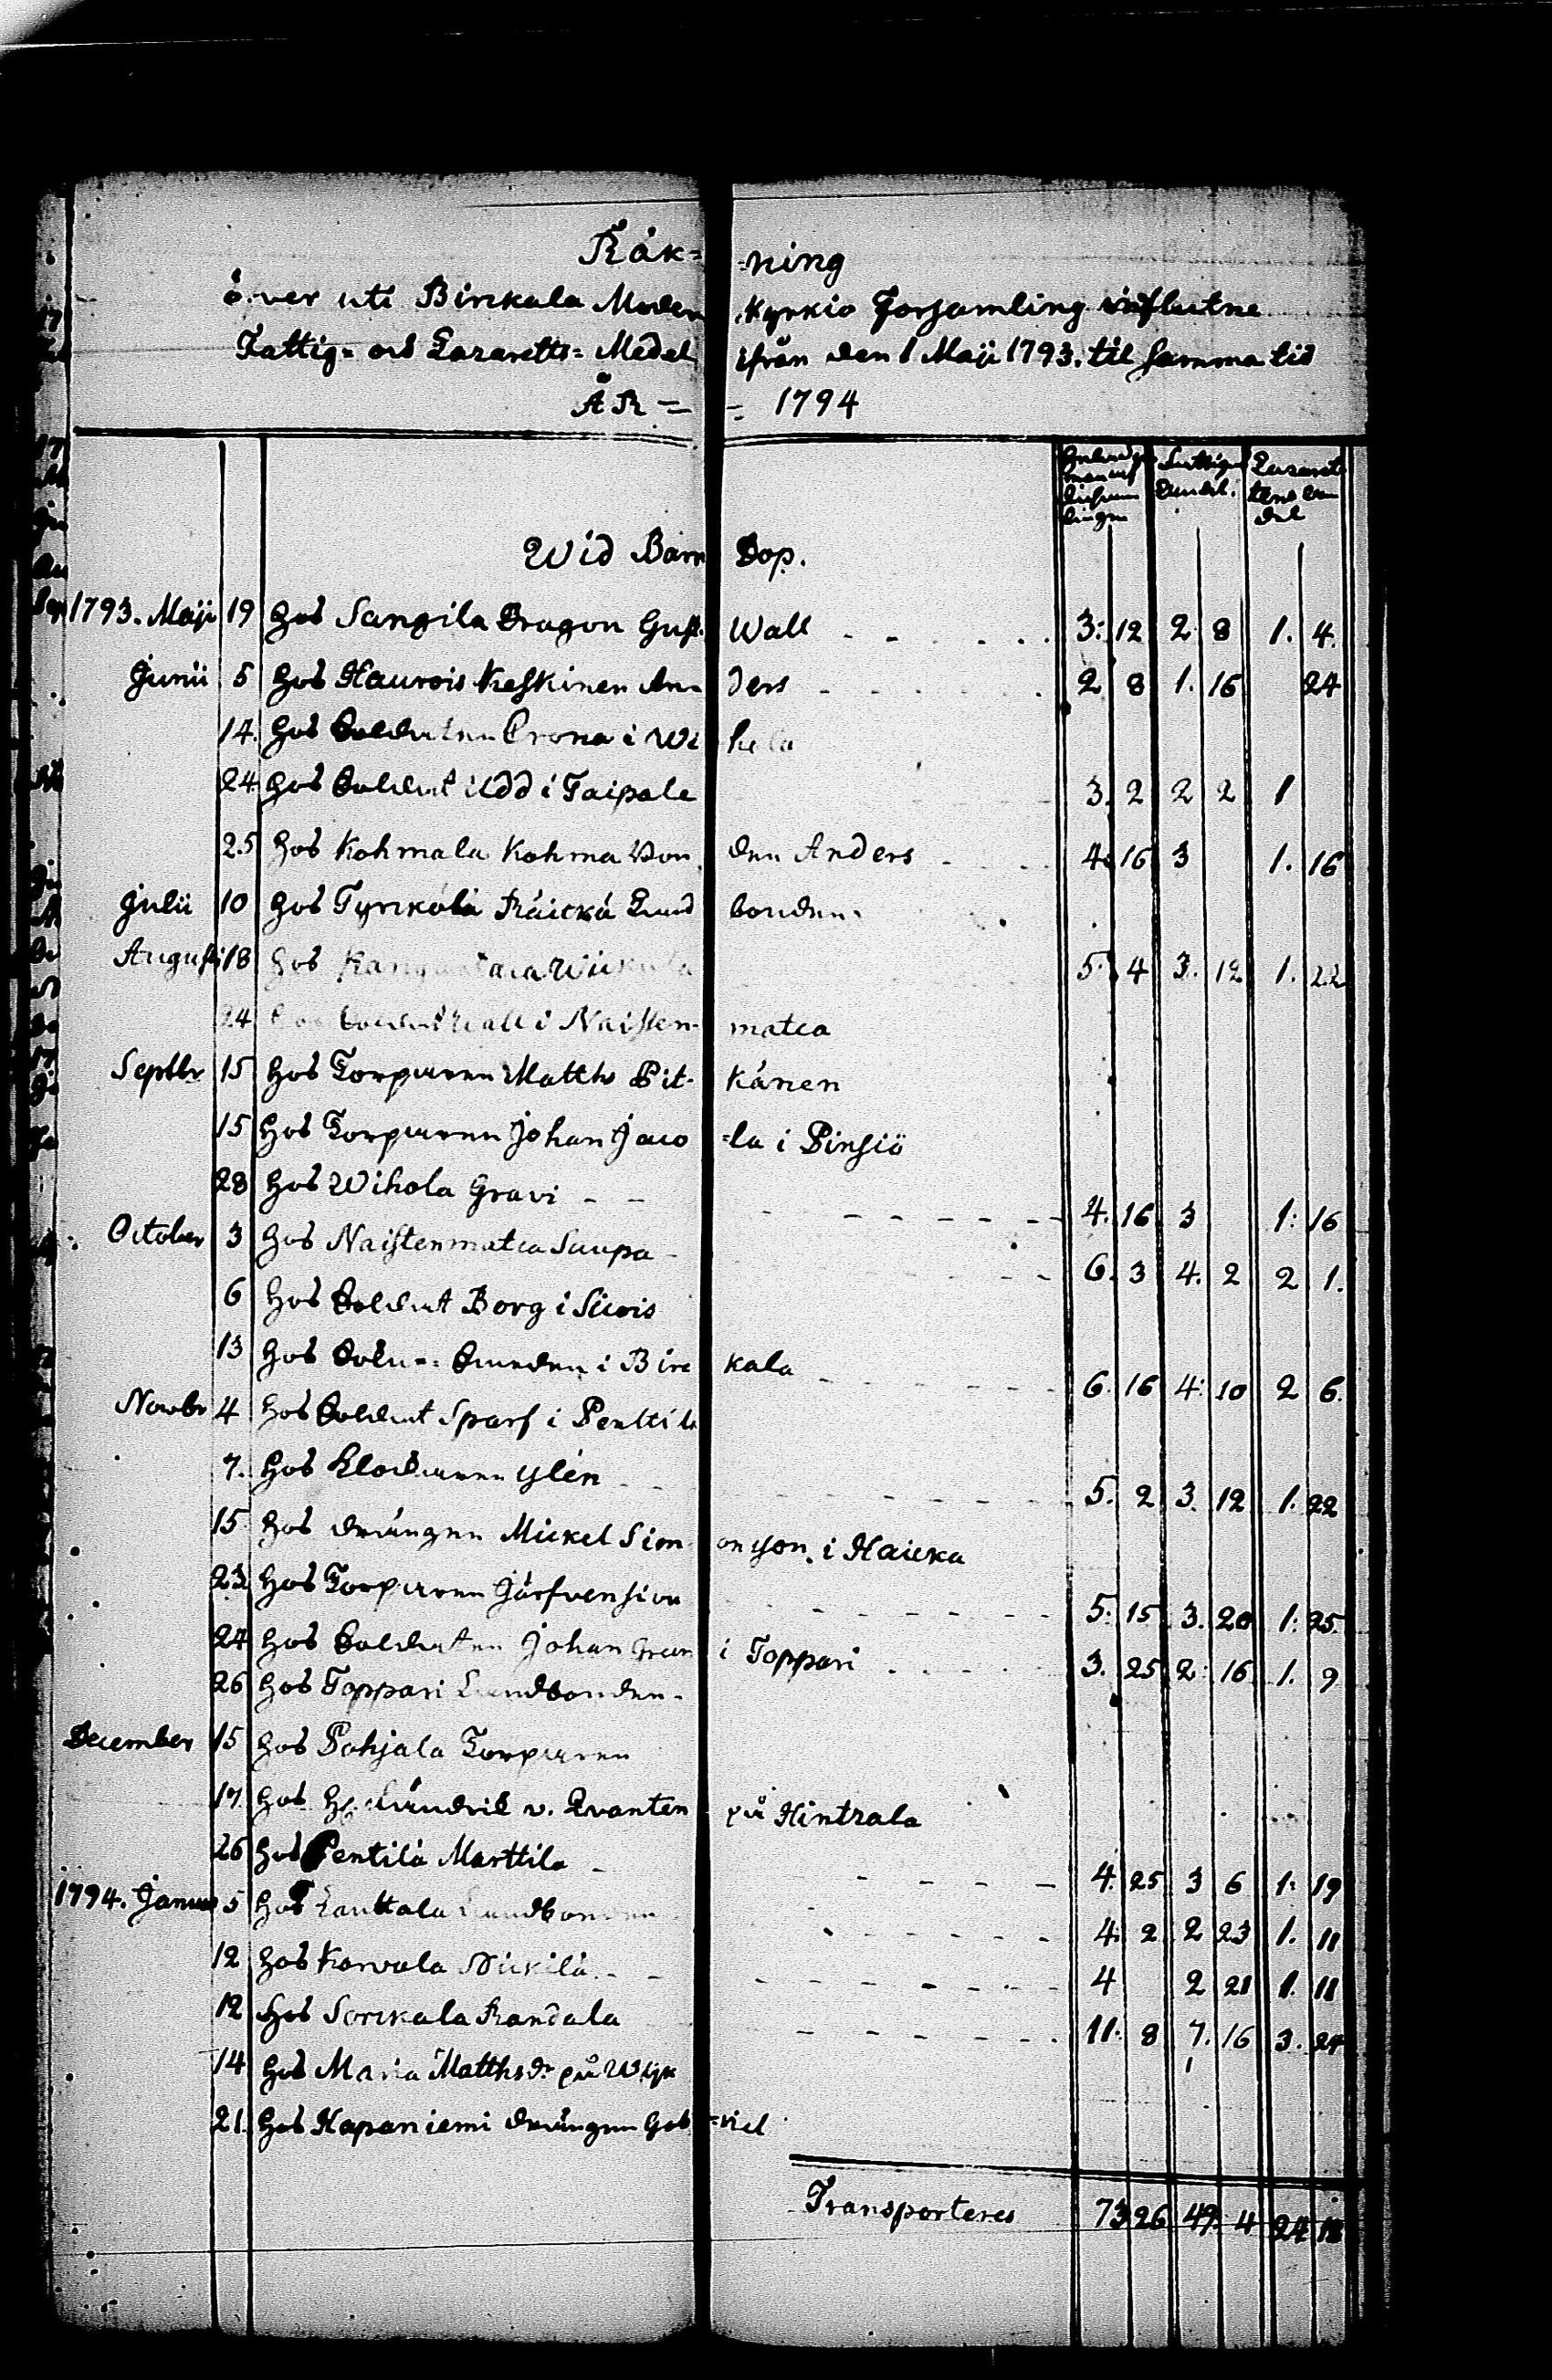 Räk= =ning
öwer uti Birckala Moder Kyrkio Forsamling influtne
Fattig= och Lazaretts= Medel ifrån den 1 Maji 1793. til samma tid
ÅR = = 1794
Fattig andel. Lazarettens andel
Wid Barn Dop.
1793. Maji 19 Hos Sangila Dragon Gust. Wall 3: 12 2 8 1. 4.
Junii 5 Hos Haurois Keskinen An= ders 2 8 1. 16 24
14. Hos Soldaten Crona i Wi hola
24 Hos Soldat Udd i Taipale 3. 2 2 2 1
25 Hos Kohmala Kohma Bon den Anders 4. 16 3 1. 16
Julii 10 Hos Tyrkölä Räickä Land bonden.
Augusti 18 Hos 5. 4 3. 12 1. 22
24 Hos Soldat Wall i Naisten- matca
Septbr 15 Hos Torparen Matths Pit- känen
15 Hos Torparen Johan Jaco =la i Pinsiö
28 Hos Wihola Gravi 4. 16 3 1: 16
October 3 Hos Naistenmatca Saupa 6. 3 4. 2 2 1.
6 Hos Soldat Borg i Siwois
13 Hos i Birc kala 6. 16 4: 10 2 6.
Novbr 4 Hos Soldat Sparf i Penttilä
7. Hos Klockaren Ylén 5. 2 3. 12 1. 22
15 Hos drängen Mickel Sim onsson i Haicka
23. Hos Torparen Järfvensivu 5: 15 3. 20 1: 25.
24 Hos Soldaten Johan Gran i Toppari 3. 25 2: 16 1. 9
26 Hos Toppari Landbonden.
December 15 Hos Pohjala Torparen
17. Hos v. Qvanten på Hintzala
26 Hos Pentilä Marttila 4. 25 3 6 1: 19
1794. Januar 5 Hos Lauttala Landbonden 4. 2 2 23 1. 11
12 Hos Korvola Nickilä 4 2 21 1. 11
12 Hos Sorckala Randala 11: 8 7. 16 3. 24
14 Hos Maria Matthsdr på Wik
21. Hos Hapaniemi drängen Gab =riel
Transporteres 73 26 49. 4 24 18